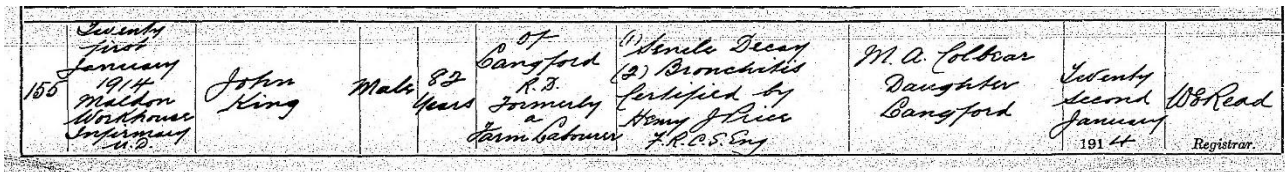 155
Twenty
first
January
1914
Maldon
Workhouse
Infirmary
U.D.
John
King
Male
82
years
Of
Langford
R.D.
Formerly
a
Farm Labourer
(1) Senile Decay
(2) Bronchitis
Certified by
Henry J Price
F.R.C.S. Eng
M. A. Colbear
Daughter
Langford
Twenty
second
January
1914
W E Read
Registrar.